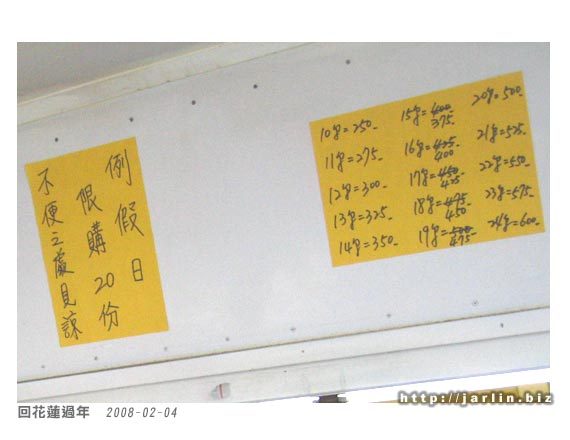 例假日
限購20份
不便之處見諒
10份=250-
11份=275-
12份=300-
13份=325-
14份=350-
15份=400 375-
16份=425 400
17份=450 425-
18份=475- 450
19份=500 475-
20份=500-
21份=525-
22份=550-
23份=575-
24份=600-
回花蓮過年 2008-02-04
http://jarlin.biz